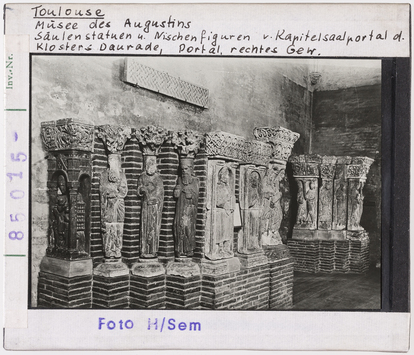 Toulouse
Musée des Augustins
Säulenstatuen u. Nischenfiguren v. Kapitelsaalportal d.
Klosters Daurade, Portal, rechtes Gew.
Inv.-Nr.
85015-
Foto H/Sem